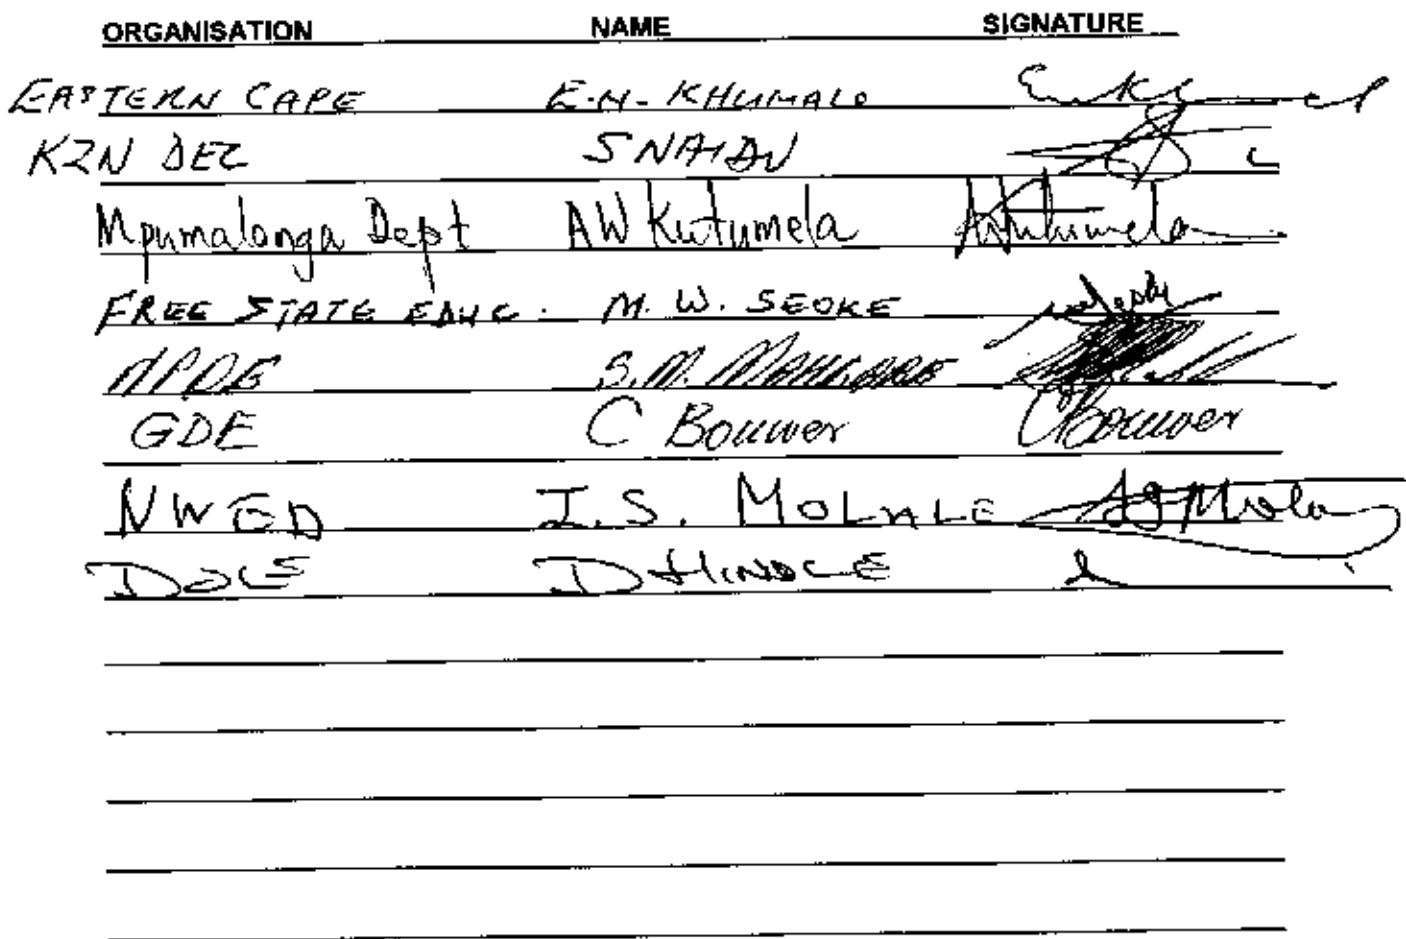 ORGANISATION NAME SIGNATURE
EASTERN CAPE E.N. KHUMALO
KZN DEC S NAIDU
Mpumalanga Dept AW Kutumela AWKutumela
FREE STATE EDUC. M. W. SEOKE
NPDE S.M.
GDE C Bouwer CBouwer
NWED I.S. MOLALE
DOE D HINDLE